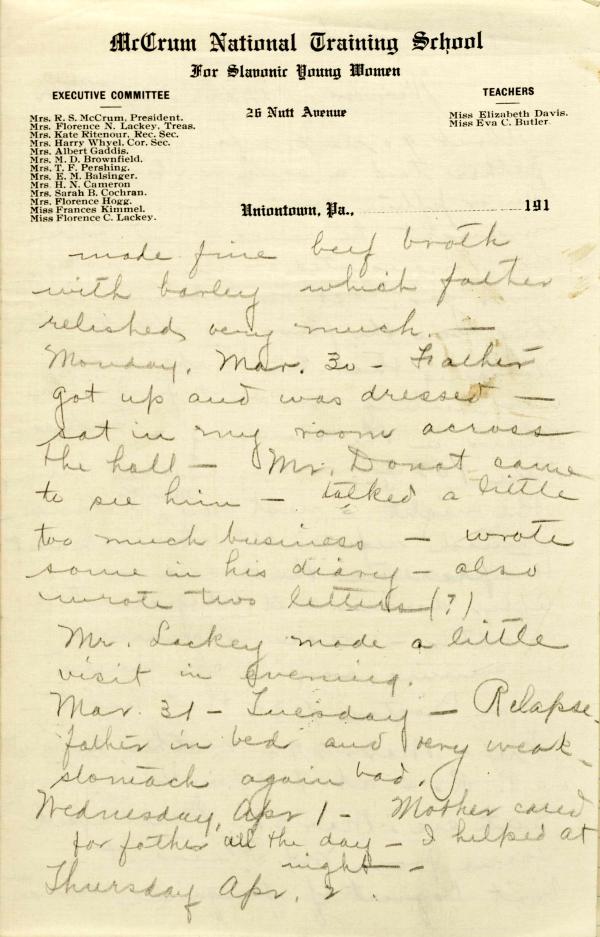 McCrum National Training School
For Slavonic Young Women
EXECUTIVE COMMITTEE
Mrs. R. S. McCrum, President.
Mrs. Florence N. Lackey, Treas.
Mrs. Kate Ritenour, Rec. Sec.
Mrs. Harry Whyel, Cor. Sec.
Mrs. Albert Gaddis.
Mrs. M. D. Brownfield.
Mrs. T. F. Pershing.
Mrs. E. M. Balsinger.
Mrs. H. N. Cameron
Mrs. Sarah B. Cochran.
Mrs. Florence Hogg.
Miss Frances Kimmel.
Miss Florence C. Lackey.
26 Nutt Avenue
TEACHERS
Miss Elizabeth Davis.
Miss Eva C. Butler.
Uniontown, Pa., 191
made fine beef broth
with barley which father
relished very much. —
Monday, Mar. 30 - Father
got up and was dressed —
sat in my room across
the hall — Mr. Donat came
to see him — talked a little
too much business — wrote
some in his diary — also
wrote two letters (?)
Mr. Lackey made a little
visit in evening.
Mar. 31 - Tuesday — Relapse -
father in bed and very weak -
stomach again bad.
Wednesday, Apr 1 - Mother cared
for father all the day — I helped at
night —
Thursday Apr. 2.